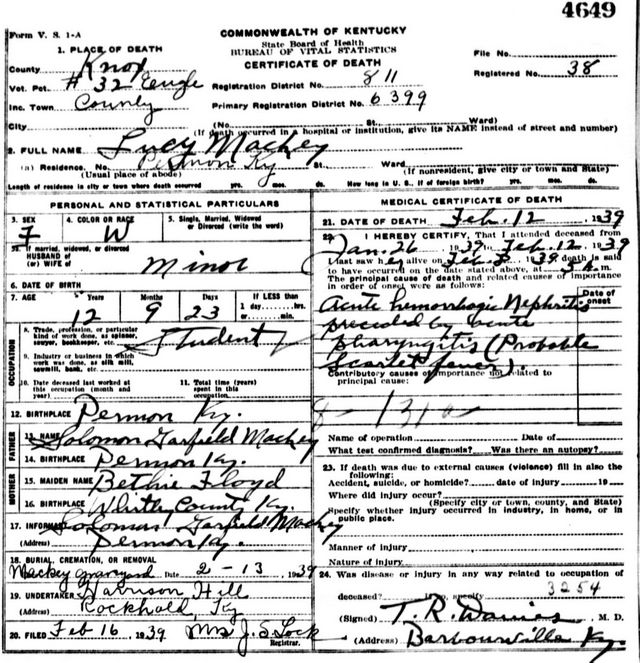 4649
Form V. S. 1-A
COMMONWEALTH OF KENTUCKY
State Board of Health
BUREAU OF VITAL STATISTICS
CERTIFICATE OF DEATH
1. PLACE OF DEATH
County Knox
Vot. Pct. # 32 Engle
Inc. Town County
File No.
Registered No. 38
Registration District No. 811
Primary Registration District No. 6399
City (No. St. Ward)
(If death occurred in a hospital or institution, give its NAME instead of street and number)
2. FULL NAME Lucy Mackey
(a) Residence. No. Permon Ky St. Ward
(Usual place of abode) (If nonresident, give city or town and State)
Length of residence in city or town where death occurred yrs. mos. ds. How long in U. S., if of foreign birth? yrs. mos. ds.
PERSONAL AND STATISTICAL PARTICULARS
3. SEX 4. COLOR OR RACE 5. Single, Married, Widowed
or Divorced (write the word)
F W
5a. If married, widowed, or divorced
HUSBAND of
(or) WIFE of Minor
6. DATE OF BIRTH
7. AGE Years Months Days If LESS than
1 day........hrs.
or........min.
12 9 23
OCCUPATION
8. Trade, profession, or particular
kind of work done, as spinner,
sawyer, bookkeeper, etc. Student
9. Industry or business in which
work was done, as silk mill,
sawmill, bank, etc.
10. Date deceased last worked at
this occupation (month and
year)
11. Total time (years)
spent in this
occupation
12. BIRTHPLACE Permon Ky.
FATHER
13. NAME Solomon Garfield Mackey
14. BIRTHPLACE Permon Ky.
MOTHER
15. MAIDEN NAME Bethie Floyd
16. BIRTHPLACE Whitley County Ky.
17. INFORMANT Solomon Garfield Mackey
(Address) Permon Ky.
18. BURIAL, CREMATION, OR REMOVAL
Mackey graveyard Date 2-13 1939
19. UNDERTAKER Harrison Hill
(Address) Rockhold, Ky
20. FILED Feb 16, 1939 Mrs J. S. Lock
Registrar.
MEDICAL CERTIFICATE OF DEATH
21. DATE OF DEATH Feb. 12 1939
22. I HEREBY CERTIFY, That I attended deceased from
Jan. 26, 1939 to Feb. 12, 1939
I last saw her alive on Feb. 1939 death is said
to have occurred on the date stated above, at 3 A. m.
The principal cause of death and related causes of importance
in order of onset were as follows:
Date of
onset
Acute hemorrhagic Nephritis
preceded by acute
pharyngitis (Probable
Scarlet fever).
Contributory causes of importance not related to
principal cause:
Name of operation Date of
What test confirmed diagnosis? Was there an autopsy?
23. If death was due to external causes (violence) fill in also the
following:
Accident, suicide, or homicide? date of injury 19
Where did injury occur?
(Specify city or town, county, and State)
Specify whether injury occurred in industry, in home, or in
public place.
Manner of injury
Nature of injury
24. Was disease or injury in any way related to occupation of
deceased? If so, specify 3254
(Signed) T. R. Davies, M. D.
(Address) Barbourville Ky.